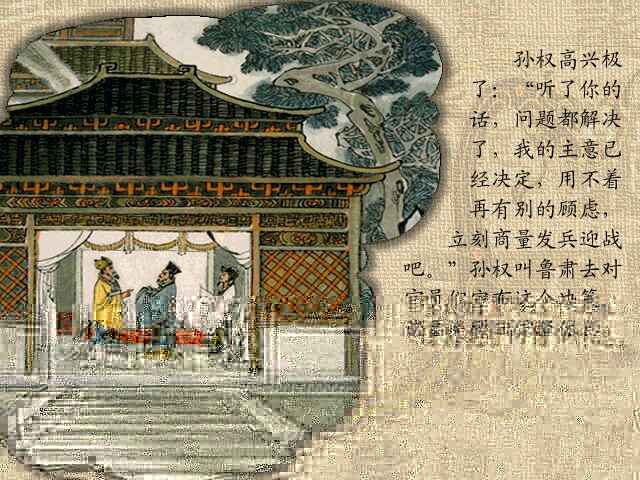 孙权高兴极
了：“听了你的
话，问题都解决
了，我的主意已
经决定，用不着
再有别的顾虑，
立刻商量发兵迎战
吧。”孙权叫鲁肃去对
官员们宣布这个决策，